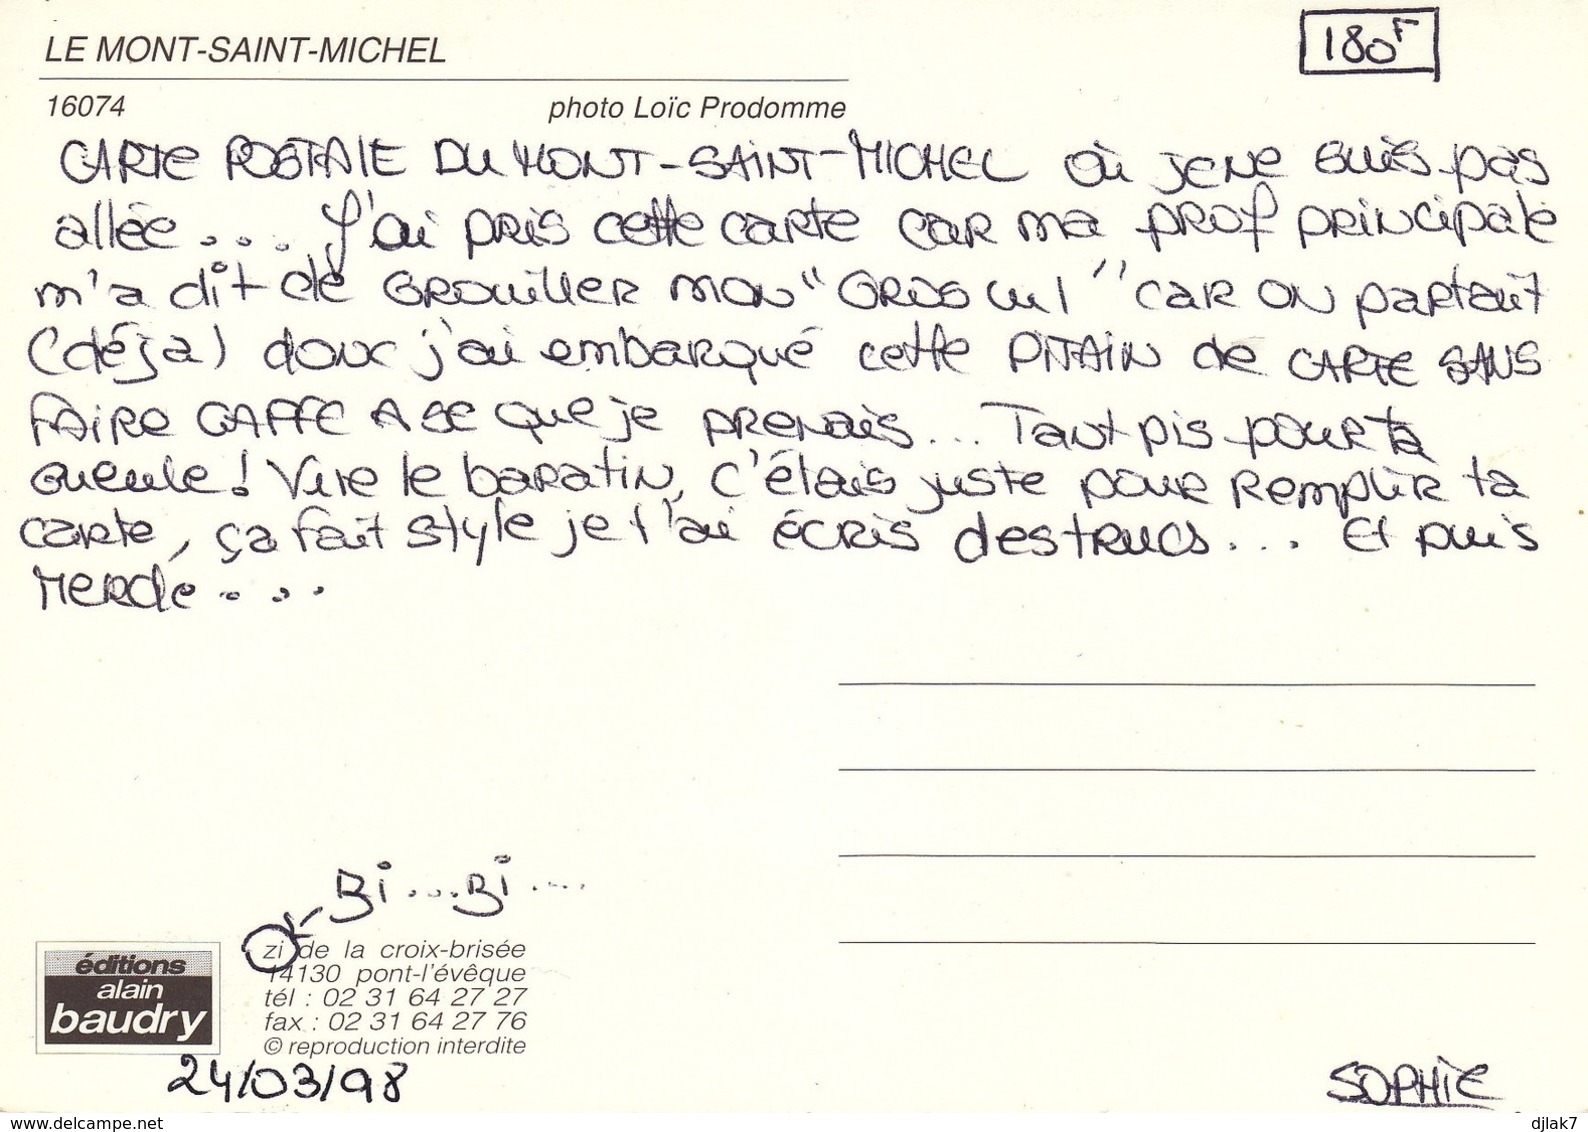 LE MONT-SAINT-MICHEL
180F
16074 photo Loïc Prodomme
CARTE POSTALE DU MONT-SAINT-MICHEL où je ne suis pas
allée.... J'ai pris cette carte car ma prof principale
m'a dit de grouiller mon "GROS cul" car on partait
(déja) donc j'ai embarqué cette PITAIN de CARTE SANS
FAIRE GAFFE A SE que je prenais... Tant pis pour ta
gueule! Vive le baratin, c'étais juste pour remplir ta
carte, ça fait style je t'ai écris des trucs... Et puis
Merde...
Bi...Bi....
zi de la croix-brisée
14130 pont-l'évêque
tél : 02 31 64 27 27
fax : 02 31 64 27 76
© reproduction interdite
éditions
alain
baudry
24/03/98
SOPHIE
www.delcampe.net
djlak7